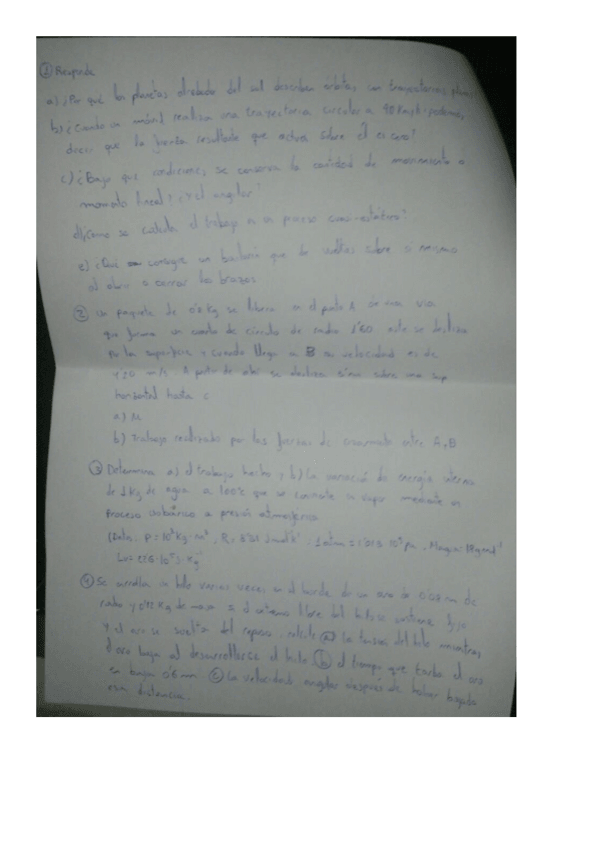 ① Responde
a) ¿Por qué los planetas alrededor del sol describen órbitas con trayectorias planas
b) ¿Cuando un móvil realiza una trayectoria circular a 90 Km/h podemos
decir que la fuerza resultante que actua sobre él es cero?
c) ¿Bajo que condiciones se conserva la cantidad de movimiento o
momento lineal? ¿y el angular?
d) ¿Como se calcula el trabajo en un proceso cuasi-estático?
e) ¿Qué consigue un bailarín que da vueltas sobre si mismo
al abrir o cerrar los brazos
② Un paquete de 0'20 Kg se libera en el punto A de una vía
que forma un cuarto de círculo de radio 1'60 este se desliza
por la superficie y cuando llega a B su velocidad es de
4'20 m/s. A partir de ahí se desliza sobre una sup
horizontal hasta C
a) μ
b) Trabajo realizado por las fuerzas de rozamiento entre A, B
③ Determina a) el trabajo hecho y b) La variación de energía interna
de 1 Kg de agua a 100°C que se convierte en vapor mediante un
proceso isobárico a presión atmosférica
(Dato: 10³ Kg m³, R= 1 atm = 1'013 10⁵ pa,
④ Se enrolla un hilo varias veces en el borde de un aro de 0,08 m de
radio y Kg de masa si el extremo libre del hilo se sostiene fijo
y el aro se suelta del reposo, calcule ⓐ La tensión del hilo mientras
el aro baja al desenrollarse el hilo ⓑ el tiempo que tarda el aro
en bajar m ⓒ La velocidad angular después de haber bajado
esa distancia.